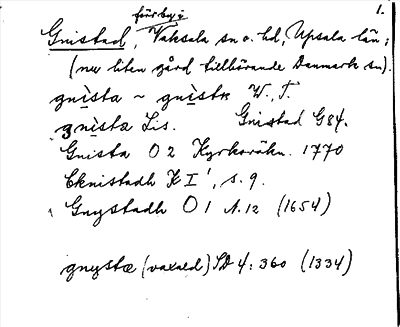 1.
förbyg
Gnistad, Vaksala sn o. hd, Upsala län;
(nu liten gård tillhörande Danmark sn).
gnista ~ gnistr W., T.
gnista Lis. Gnistad G84.
Gnista O 2 Kyrkoräkn. 1770
Eknistadh K I', s. 9.
Gnystadh O 1 A. 12 (1654)
gnystæ (vaxald) SD 4: 360 (1334)